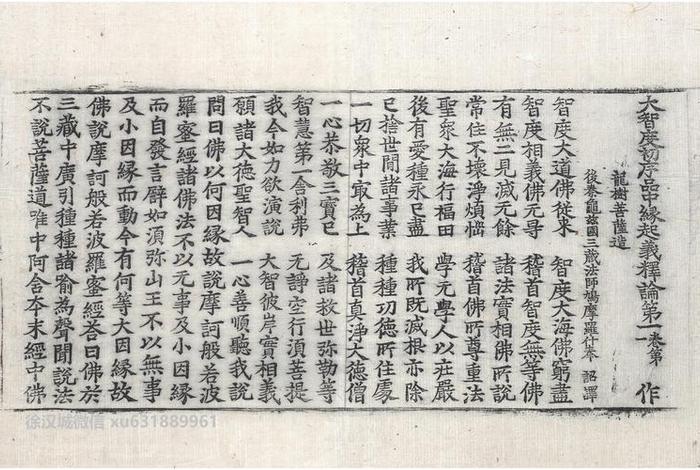 大智度初序品中縁起義釋論第一 卷第 作
龍樹菩薩造
後秦龜茲國三藏法師鳩摩羅什奉 詔譯
智度大道佛從来 智度大海佛窮盡
智度相義佛无㝵 稽首智度無等佛
有無二見滅无餘 諸法實相佛所說
常住不壞淨煩惱 稽首佛所尊重法
聖衆大海行福田 學无學人以莊嚴
後有愛種永已盡 我所既滅根亦除
已捨世間諸事業 種種功德所住處
一切衆中㝡為上 稽首真淨大德僧
一心恭敬三寶已 及諸救世弥勒等
智慧第一舍利弗 无諍空行須菩提
我今如力欲演說 大智彼岸實相義
願諸大德聖智人 一心善順聽我說
問曰佛以何因縁故說摩訶般若波
羅蜜經諸佛法不以无事及小因縁
而自發言譬如須弥山王不以無事
及小因縁而動今有何等大因縁故
佛說摩訶般若波羅蜜經荅曰佛於
三藏中廣引種種諸喻為聲聞說法
不說菩薩道唯中阿含夲末經中佛
徐汉城微信 xu631889961